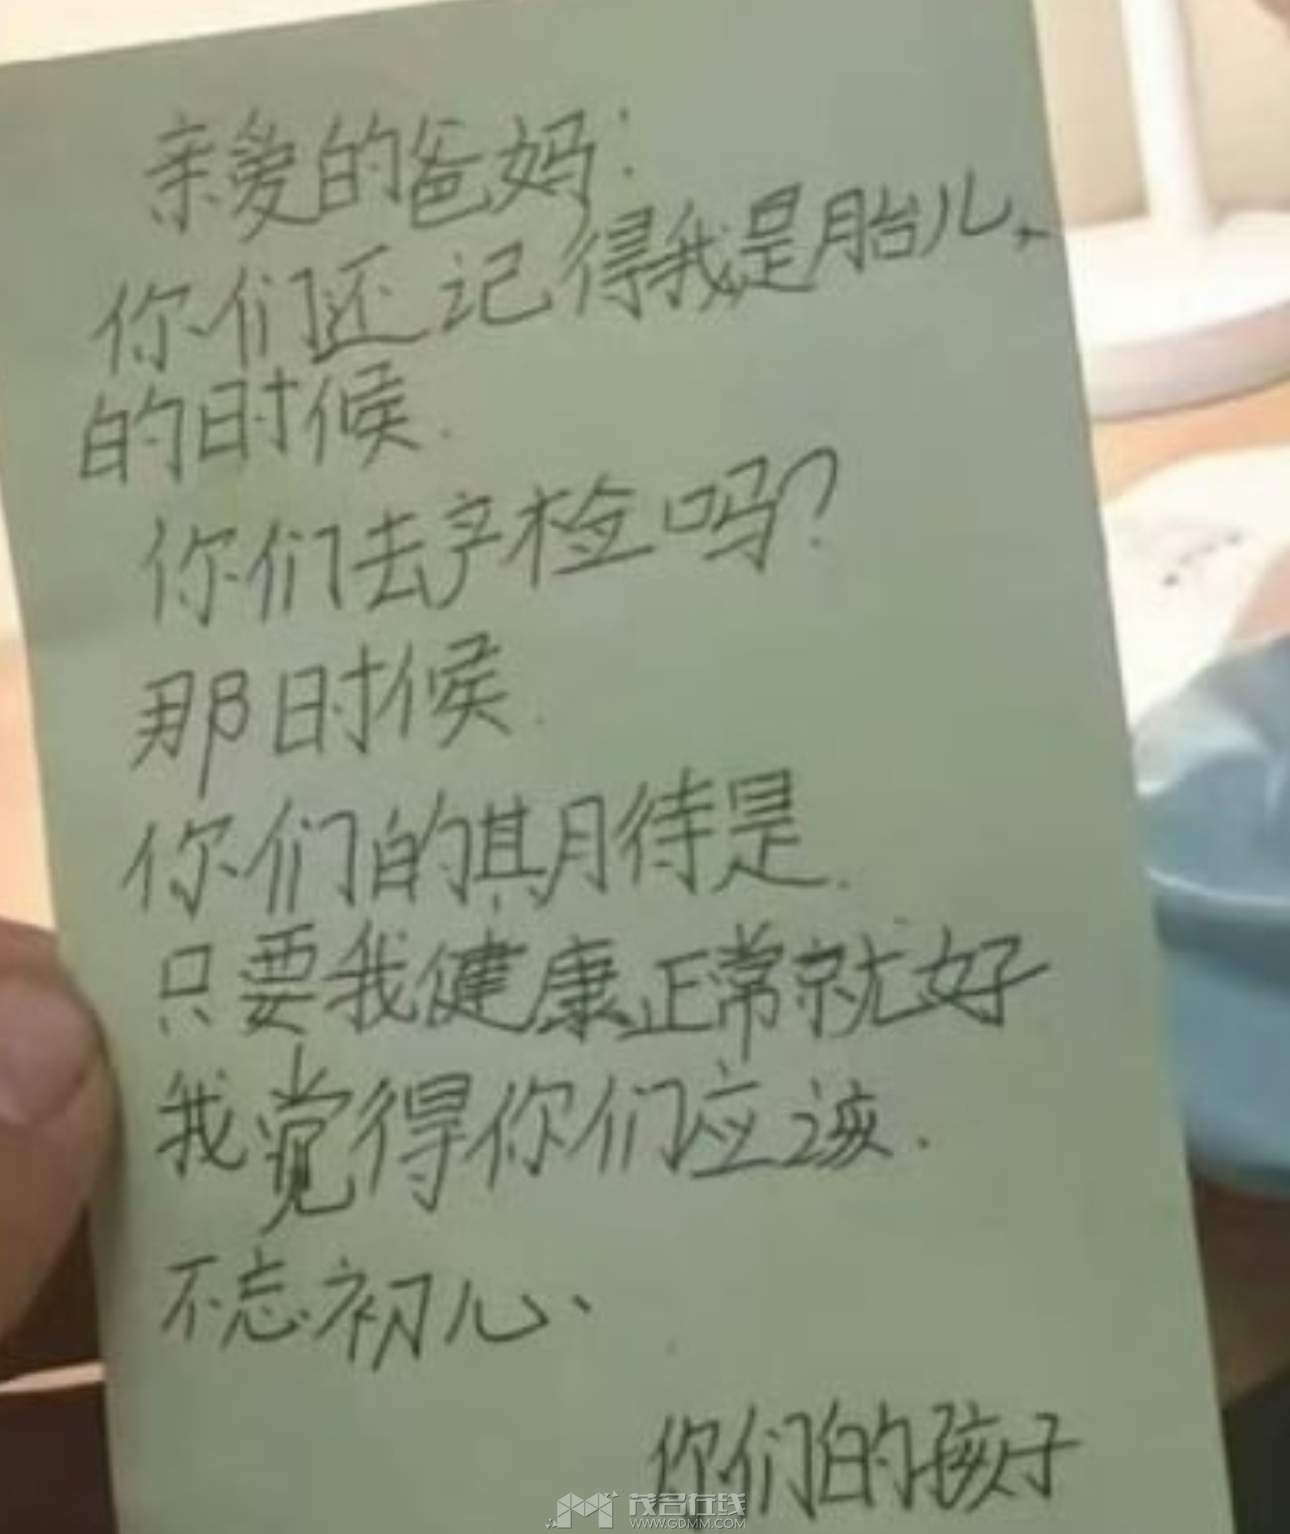 亲爱的爸妈：
你们还记得我是胎儿、
的时候.
你们去产检吗？
那时候.
你们的期待是.
只要我健康正常就好
我觉得你们应该.
不忘初心、
你们的孩子
茂名在线
WWW.GDMM.COM